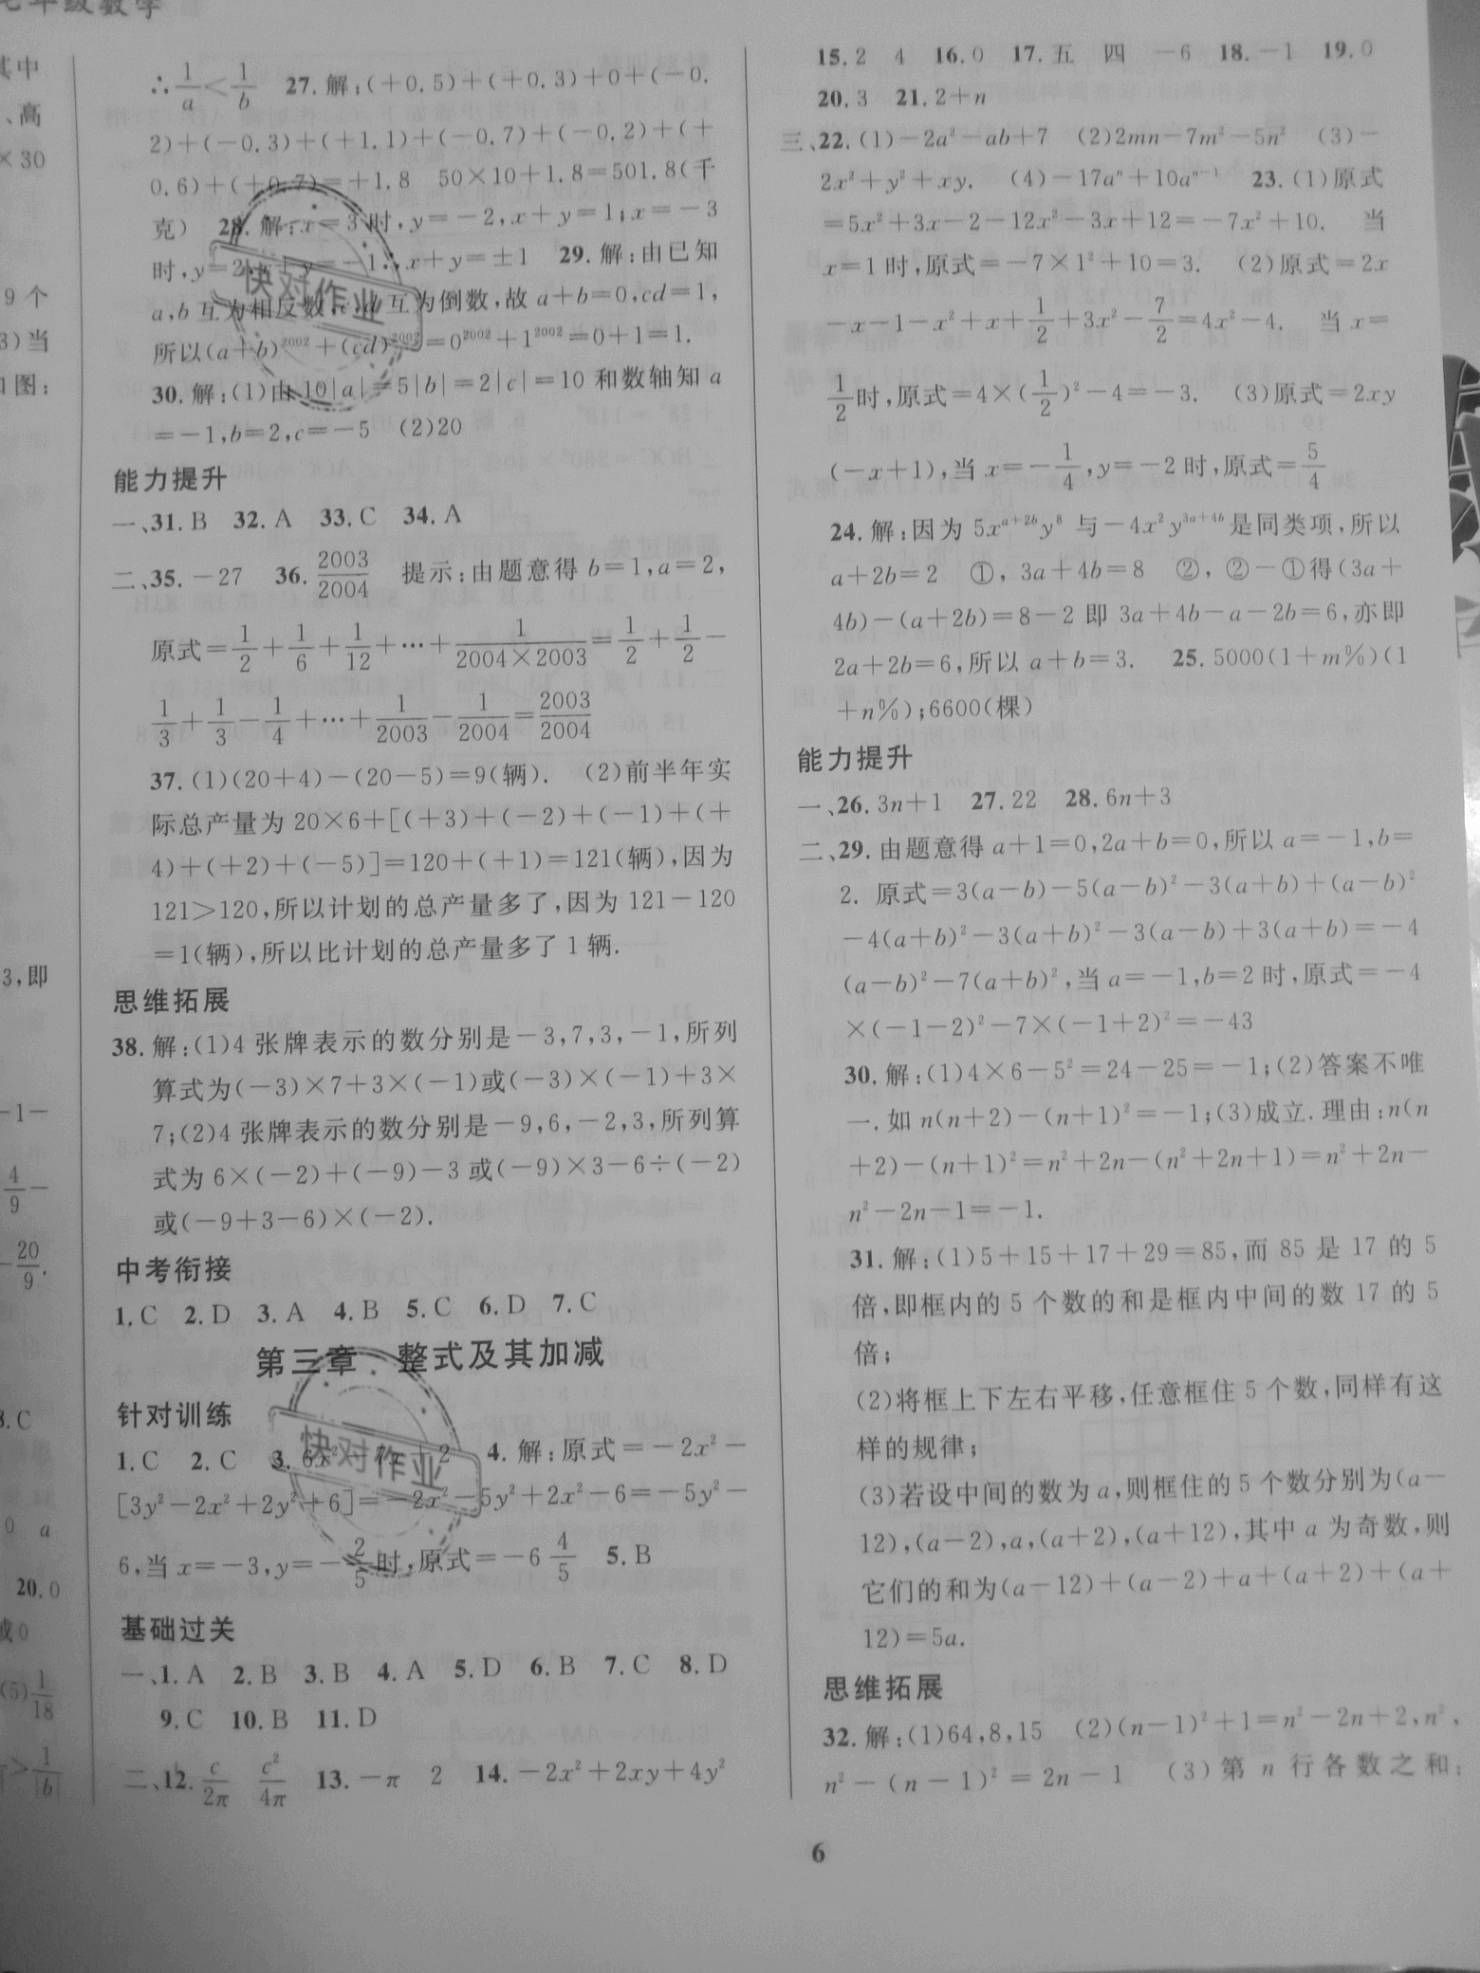 七年级数学
其中
、高
×30
9个
3)当
图:
3,即
-1-
4/9-
-20/9.
8.C
0 a
20.0
或0
(5)1/18
>1/|b|
∴1/a<1/b 27.解:(+0.5)+(+0.3)+0+(-0.
2)+(-0.3)+(+1.1)+(-0.7)+(-0.2)+(+
0.6)+(+0.7)=+1.8 50×10+1.8=501.8(千
克) 28.解:x=3时,y=-2,x+y=1;x=-3
时,y=2,x+y=-1∴x+y=±1 29.解:由已知
a,b互为相反数,c,d互为倒数,故a+b=0,cd=1,
所以(a+b)²⁰⁰²+(cd)²⁰⁰²=0²⁰⁰²+1²⁰⁰²=0+1=1.
30.解:(1)由10|a|=5|b|=2|c|=10和数轴知a
=-1,b=2,c=-5 (2)20
能力提升
一、31.B 32.A 33.C 34.A
二、35.-27 36.2003/2004 提示:由题意得b=1,a=2,
原式=1/2+1/6+1/12+…+1/(2004×2003)=1/2+1/2-
1/3+1/3-1/4+…+1/2003-1/2004=2003/2004
37.(1)(20+4)-(20-5)=9(辆). (2)前半年实
际总产量为20×6+[(+3)+(-2)+(-1)+(+
4)+(+2)+(-5)]=120+(+1)=121(辆),因为
121>120,所以计划的总产量多了,因为121-120
=1(辆),所以比计划的总产量多了1辆.
思维拓展
38.解:(1)4张牌表示的数分别是-3,7,3,-1,所列
算式为(-3)×7+3×(-1)或(-3)×(-1)+3×
7;(2)4张牌表示的数分别是-9,6,-2,3,所列算
式为6×(-2)+(-9)-3或(-9)×3-6÷(-2)
或(-9+3-6)×(-2).
中考衔接
1.C 2.D 3.A 4.B 5.C 6.D 7.C
第三章 整式及其加减
针对训练
1.C 2.C 3. 4.解:原式=-2x²-
[3y²-2x²+2y²+6]=-2x²-5y²+2x²-6=-5y²-
6,当x=-3,y=-2/5时,原式=-6 4/5 5.B
基础过关
一、1.A 2.B 3.B 4.A 5.D 6.B 7.C 8.D
9.C 10.B 11.D
二、12.c/2π c²/4π 13.-π 2 14.-2x²+2xy+4y²
快对作业
快对作业
15.2 4 16.0 17.五 四 -6 18.-1 19.0
20.3 21.2+n
三、22.(1)-2a²-ab+7 (2)2mn-7m²-5n² (3)-
2x²+y²+xy. (4)-17aⁿ+10aⁿ⁻¹ 23.(1)原式
=5x²+3x-2-12x²-3x+12=-7x²+10. 当
x=1时,原式=-7×1²+10=3. (2)原式=2x
-x-1-x²+x+1/2+3x²-7/2=4x²-4. 当x=
1/2时,原式=4×(1/2)²-4=-3. (3)原式=2xy
(-x+1),当x=-1/4,y=-2时,原式=5/4
24.解:因为5xᵃ⁺²ᵇy⁸与-4x²y³ᵃ⁺⁴ᵇ是同类项,所以
a+2b=2 ①,3a+4b=8 ②,②-①得(3a+
4b)-(a+2b)=8-2即3a+4b-a-2b=6,亦即
2a+2b=6,所以a+b=3. 25.5000(1+m%)(1
+n%);6600(棵)
能力提升
一、26.3n+1 27.22 28.6n+3
二、29.由题意得a+1=0,2a+b=0,所以a=-1,b=
2. 原式=3(a-b)-5(a-b)²-3(a+b)+(a-b)²
-4(a+b)²-3(a+b)²-3(a-b)+3(a+b)=-4
(a-b)²-7(a+b)²,当a=-1,b=2时,原式=-4
×(-1-2)²-7×(-1+2)²=-43
30.解:(1)4×6-5²=24-25=-1;(2)答案不唯
一.如n(n+2)-(n+1)²=-1;(3)成立.理由:n(n
+2)-(n+1)²=n²+2n-(n²+2n+1)=n²+2n-
n²-2n-1=-1.
31.解:(1)5+15+17+29=85,而85是17的5
倍,即框内的5个数的和是框内中间的数17的5
倍;
(2)将框上下左右平移,任意框住5个数,同样有这
样的规律;
(3)若设中间的数为a,则框住的5个数分别为(a-
12),(a-2),a,(a+2),(a+12),其中a为奇数,则
它们的和为(a-12)+(a-2)+a+(a+2)+(a+
12)=5a.
思维拓展
32.解:(1)64,8,15 (2)(n-1)²+1=n²-2n+2,n²,
n²-(n-1)²=2n-1 (3)第n行各数之和:
6